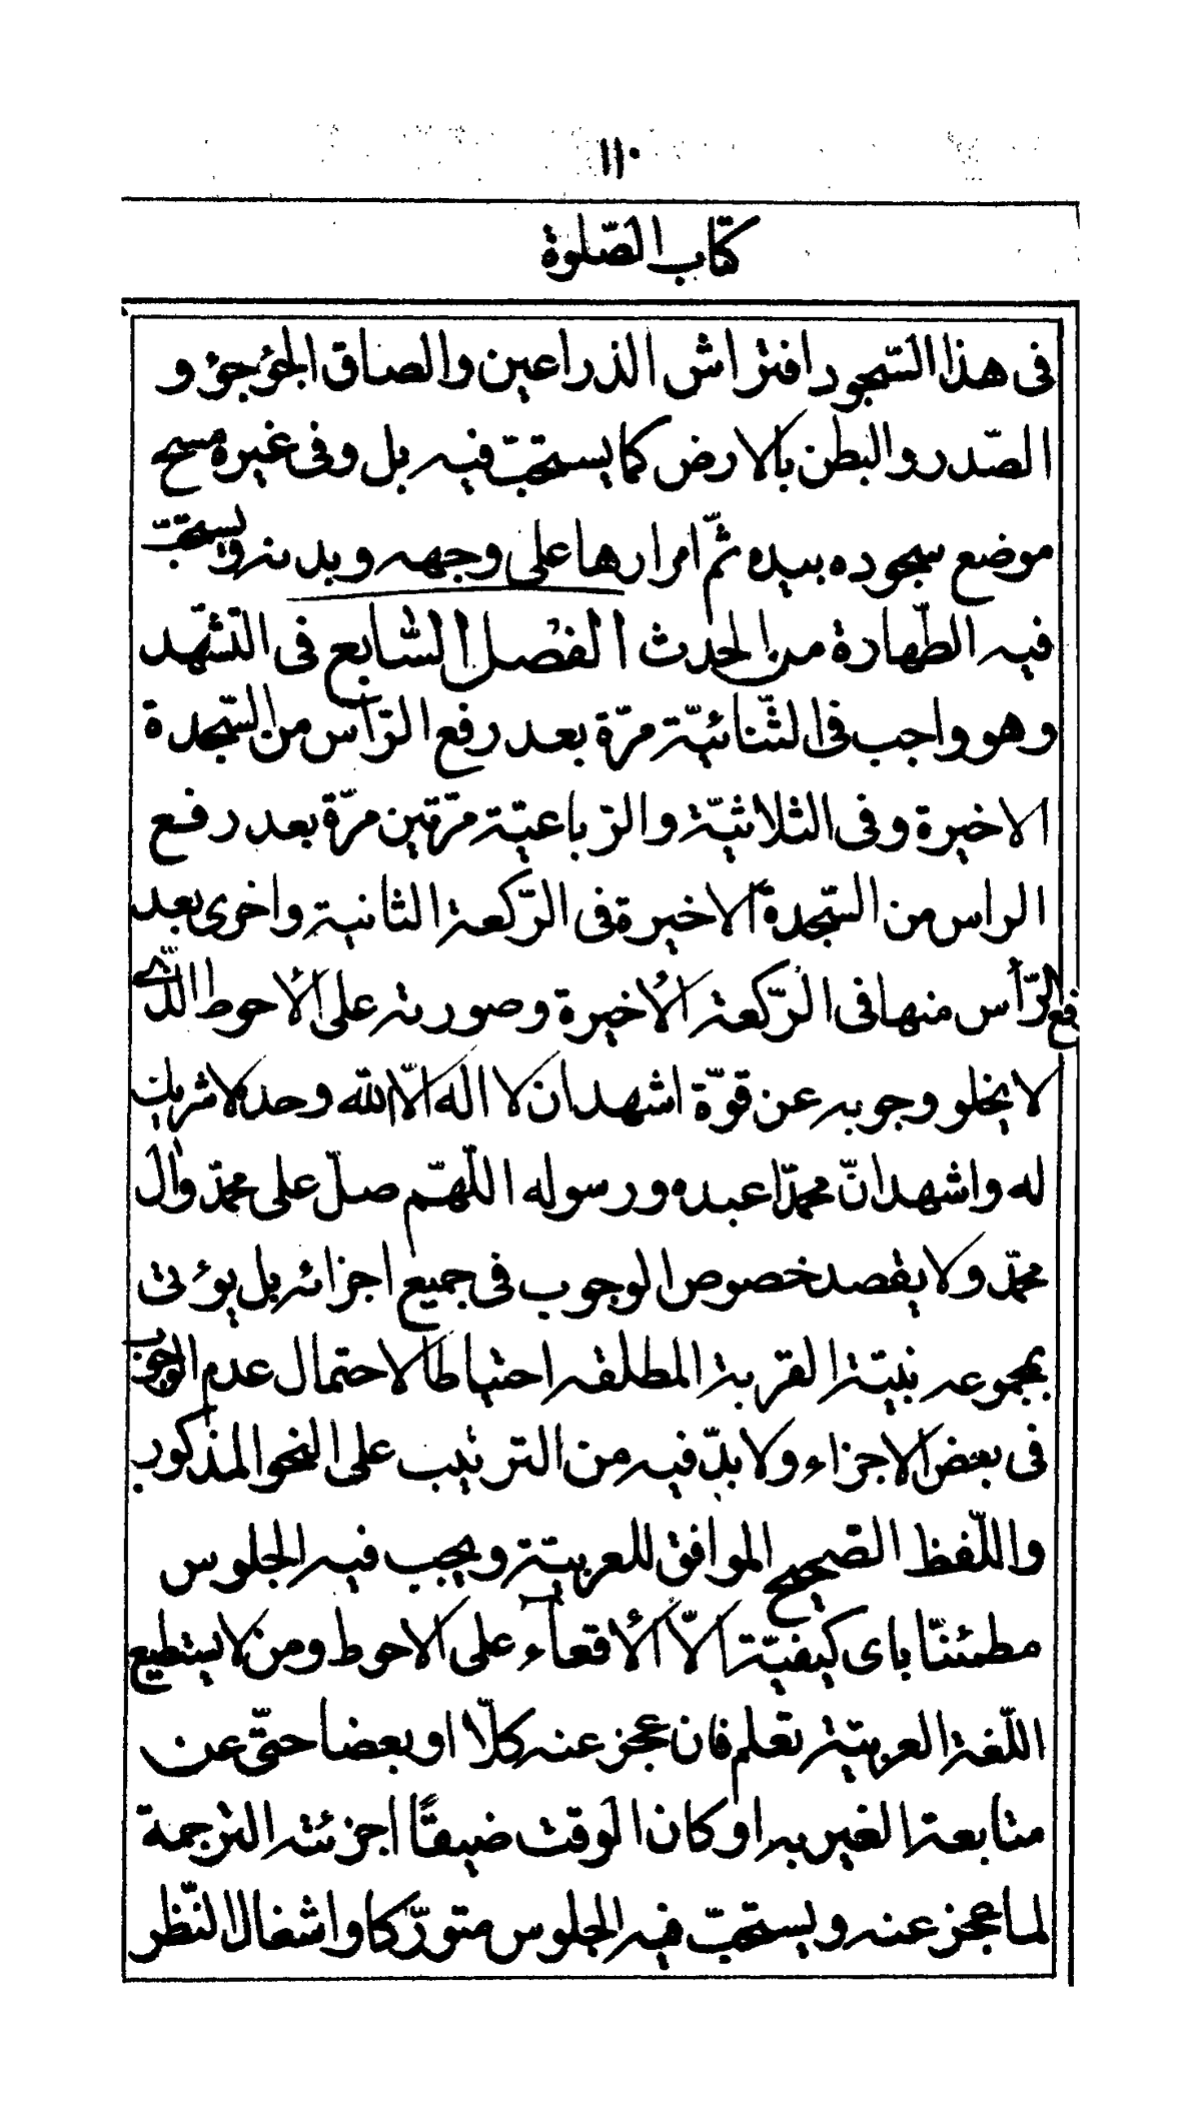 ١١٠
كتاب الصّلوة
فى هذا السّجود افتراش الذراعين والصاق الجؤجؤ و
الصّدر والبطن بالارض كما يستحبّ فيه بل وفى غيره مسح
موضع سجوده بيده ثمّ امرارها على وجهه وبدنه ويستحبّ
فيه الطّهارة من الحدث الفصل السّابع فى التّشهّد
وهو واجب فى الثّنائيّة مرّة بعد رفع الرّاس من السّجدة
الاخيرة وفى الثلاثيّة والرّباعيّة مرّتين مرّة بعد رفع
الراس من السّجدة الاخيرة فى الرّكعة الثانية واخرى بعد
رفع الرّأس منها فى الرّكعة الأخيرة وصورته على الأحوط الّذى
لا يخلو وجوبه عن قوّة اشهد ان لا اله الّا الله وحده لا شريك
له واشهد انّ محمّدا عبده ورسوله اللّهمّ صلّ على محمّد وال
محمّد ولا يقصد خصوص الوجوب فى جميع اجزائه بل يؤتى
بمجموعه بنيّة القربة المطلقه احتياطا لاحتمال عدم الوجوب
فى بعض الاجزاء ولا بدّ فيه من الترتيب على النحو المذكور
واللّفظ الصّحيح الموافق للعربيّة ويجب فيه الجلوس
مطمئنّا باى كيفيّة الّا الأقعآء على الاحوط ومن لا يستطيع
اللّغة العربيّة تعلم فان عجز عنه كلّا او بعضا حتّى عن
متابعة الغير به او كان الوقت ضيقًا اجزئته الترجمة
لما عجز عنه ويستحبّ فيه الجلوس متورّكا واشغال النّظر